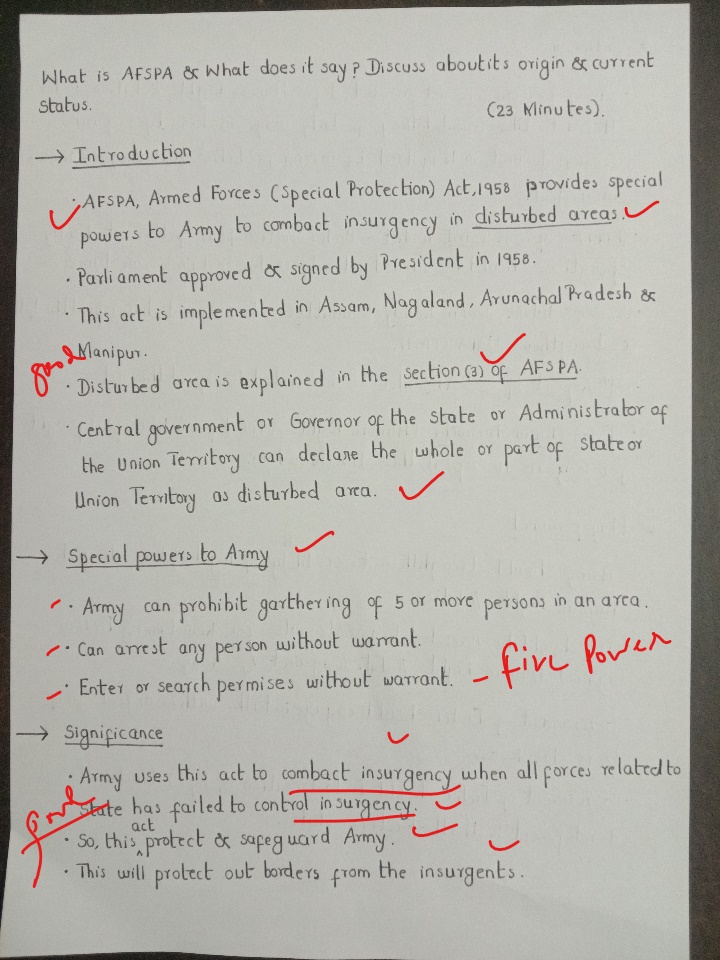 What is AFSPA & What does it say? Discuss about its origin & current
status.
(23 Minutes).
→ Introduction
· AFSPA, Armed Forces (Special Protection) Act, 1958 provides special
powers to Army to combact insurgency in disturbed areas.
· Parliament approved & signed by President in 1958.
· This act is implemented in Assam, Nagaland, Arunachal Pradesh &
good Manipur.
· Disturbed area is explained in the section (3) of AFSPA.
· Central government or Governor of the state or Administrator of
the Union Territory can declare the whole or part of state or
Union Territory as disturbed area.
→ Special powers to Army
· Army can prohibit garthering of 5 or more persons in an area.
· Can arrest any person without warrant.
· Enter or search permises without warrant. - fire Power
→ Significance
· Army uses this act to combact insurgency when all forces related to
state has failed to control insurgency.
· So, this act protect & safeguard Army.
· This will protect out borders from the insurgents.